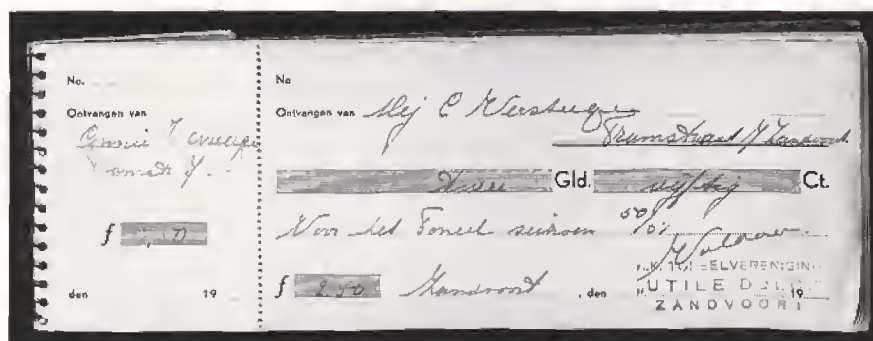 No.
Ontvangen van
f
den 19
No
Ontvangen van Mej C Versteege
Tramstraat Zandvoort
Twee Gld. vijftig Ct.
Voor het Toneel seizoen 50/51
f 2.50 Zandvoort, den 19
TONEELVERENIGING
UTILE DULCI
ZANDVOORT